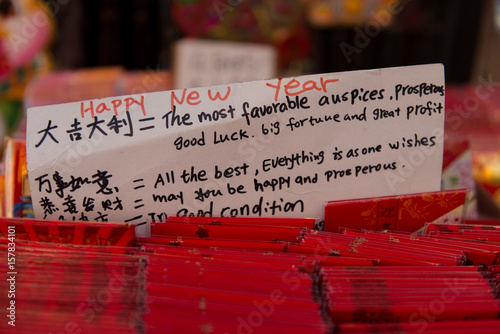 Happy New Year
大吉大利 = The most favorable auspices, prosperous
good luck. big fortune and great profit
万事如意 = All the best, Everything is as one wishes
恭喜发财 = may you be happy and prosperous.
= In Good condition